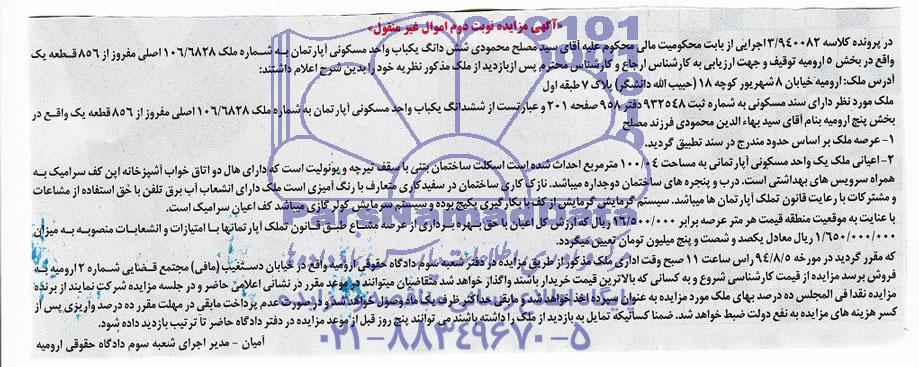 «آگهی مزایده نوبت دوم اموال غیر منقول»
در پرونده کلاسه ۳/۹۴۰۰۸۲ اجرایی از بابت محکومیت مالی محکوم علیه آقای سید مصلح محمودی شش دانگ یکباب واحد مسکونی آپارتمان به شماره ملک ۱۰۶/۶۸۲۸ اصلی مفروز از ۸۵۶ قطعه یک
واقع در بخش ۵ ارومیه توقیف و جهت ارزیابی به کارشناس ارجاع و کارشناس محترم پس ازبازدید از ملک مذکور نظریه خود را بدین شرح اعلام داشتند:
آدرس ملک: ارومیه خیابان ۸ شهریور کوچه ۱۸ (حبیب الله دانشگر) پلاک ۷ طبقه اول
ملک مورد نظر دارای سند مسکونی به شماره ثبت ۹۳۲۵۴۸ دفتر ۹۵۸ صفحه ۲۰۱ و عبارتست از ششدانگ یکباب واحد مسکونی آپارتمان به شماره ملک ۱۰۶/۶۸۲۸ اصلی مفروز از ۸۵۶ قطعه یک واقع در
بخش پنج ارومیه بنام آقای سید بهاء الدین محمودی فرزند مصلح
۱- عرصه ملک بر اساس حدود مندرج در سند تطبیق گردید.
۲- اعیانی ملک یک واحد مسکونی آپارتمانی به مساحت ۱۰۰/۰۴ مترمربع احداث شده است اسکلت ساختمان بتنی با سقف تیرچه و یونولیت است که دارای هال دو اتاق خواب آشپزخانه این کف سرامیک به
همراه سرویس های بهداشتی است. درب و پنجره های ساختمان دوجداره میباشد. نازک کاری ساختمان در سفیدکاری متعارف با رنگ آمیزی است ملک دارای انشعاب آب برق تلفن با حق استفاده از مشاعات
و مشترکات با رعایت قانون تملک آپارتمان ها میباشد. سیستم گرمایش گرمایش از کف با بکارگیری پکیج بوده و سیستم سرمایش کولر گازی میباشد کف اعیان سرامیک است.
با عنایت به موقعیت منطقه قیمت هر متر عرصه برابر ۱۶/۵۰۰/۰۰۰ ریال که ارزش کل اعیان با حق بهره برداری از عرصه مشاع طبق قانون تملک آپارتمانها با امتیازات و انشعابات منصوبه به میزان
۱/۶۵۰/۰۰۰/۰۰۰ ریال معادل یکصد و شصت و پنج میلیون تومان تعیین میگردد.
که مقرر گردید در مورخه ۹۴/۸/۵ راس ساعت ۱۱ صبح وقت اداری ملک مذکور از طریق مزایده در دفتر شعبه سوم دادگاه حقوقی ارومیه واقع در خیابان دستغیب (مافی) مجتمع قضایی شماره ۲ ارومیه به
فروش برسد مزایده از قیمت کارشناسی شروع و به کسانی که بالاترین قیمت خریدار باشند واگذار خواهد شد متقاضیان میتوانند در موعد مقرر در نشانی اعلامی حاضر و در جلسه مزایده شرکت نمایند از برنده
مزایده نقدا فی المجلس ده درصد بهای ملک مورد مزایده به عنوان سپرده اخذ خواهد شد و مابقی حداکثر ظرف یک ماه وصول خواهد شد و در صورت عدم پرداخت مابقی در مهلت مقرر ده درصد واریزی پس از
کسر هزینه های مزایده به نفع دولت ضبط خواهد شد. ضمنا کسانیکه تمایل به بازدید از ملک را داشته باشند می توانند پنج روز قبل از موعد مزایده در دفتر دادگاه حاضر تا ترتیب بازدید داده شود.
امیان - مدیر اجرای شعبه سوم دادگاه حقوقی ارومیه
ParsNamadData
۰۲۱-۸۸۳۴۹۶۷۰-۵